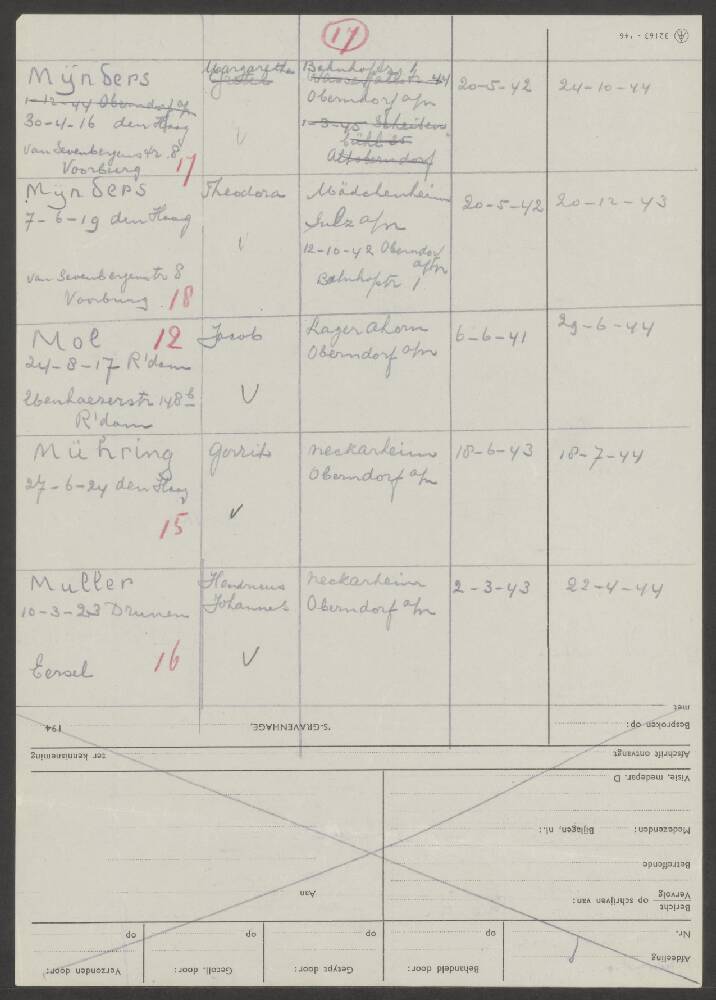 17
32163 - '46
Mÿnders Margaretha Bahnhofstr 1 20-5-42 24-10-44
Oberndorf a/n
1-12-44 Oberndorf a/n
30-4-16 den Haag
1-3-45
van Sevenbergenstr. 8
Voorburg 17
Altoberndorf
Mÿnders Theodora Mädchenheim 20-5-42 20-12-43
7-6-19 den Haag Sulz a/n
12-10-42 Oberndorf a/n
van Sevenbergenstr 8 Bahnhofstr 1
Voorburg 18
Mol 12 Jacob Lager Ahorn 6-6-41 29-6-44
24-8-17 R'dam Oberndorf a/n
148 b
R'dam
Mühring Gerrit neckarheim 18-6-43 18-7-44
27-6-24 den Haag Oberndorf a/n
15
Muller Hendricus neckarheim 2-3-43 22-4-44
10-3-23 Drunen Johannes Oberndorf a/n
Eersel 16
met
Besproken op:
'S-GRAVENHAGE, 194
Afschrift ontvangt ter kennisneming
Visie, medepar. D
Medezenden: Bijlagen, nl.:
Betreffende
Bericht
Vervolg op schrijven van:
Aan
Nr. op op op op
Afdeeling Behandeld door: Getypt door: Gecoll. door: Verzonden door: